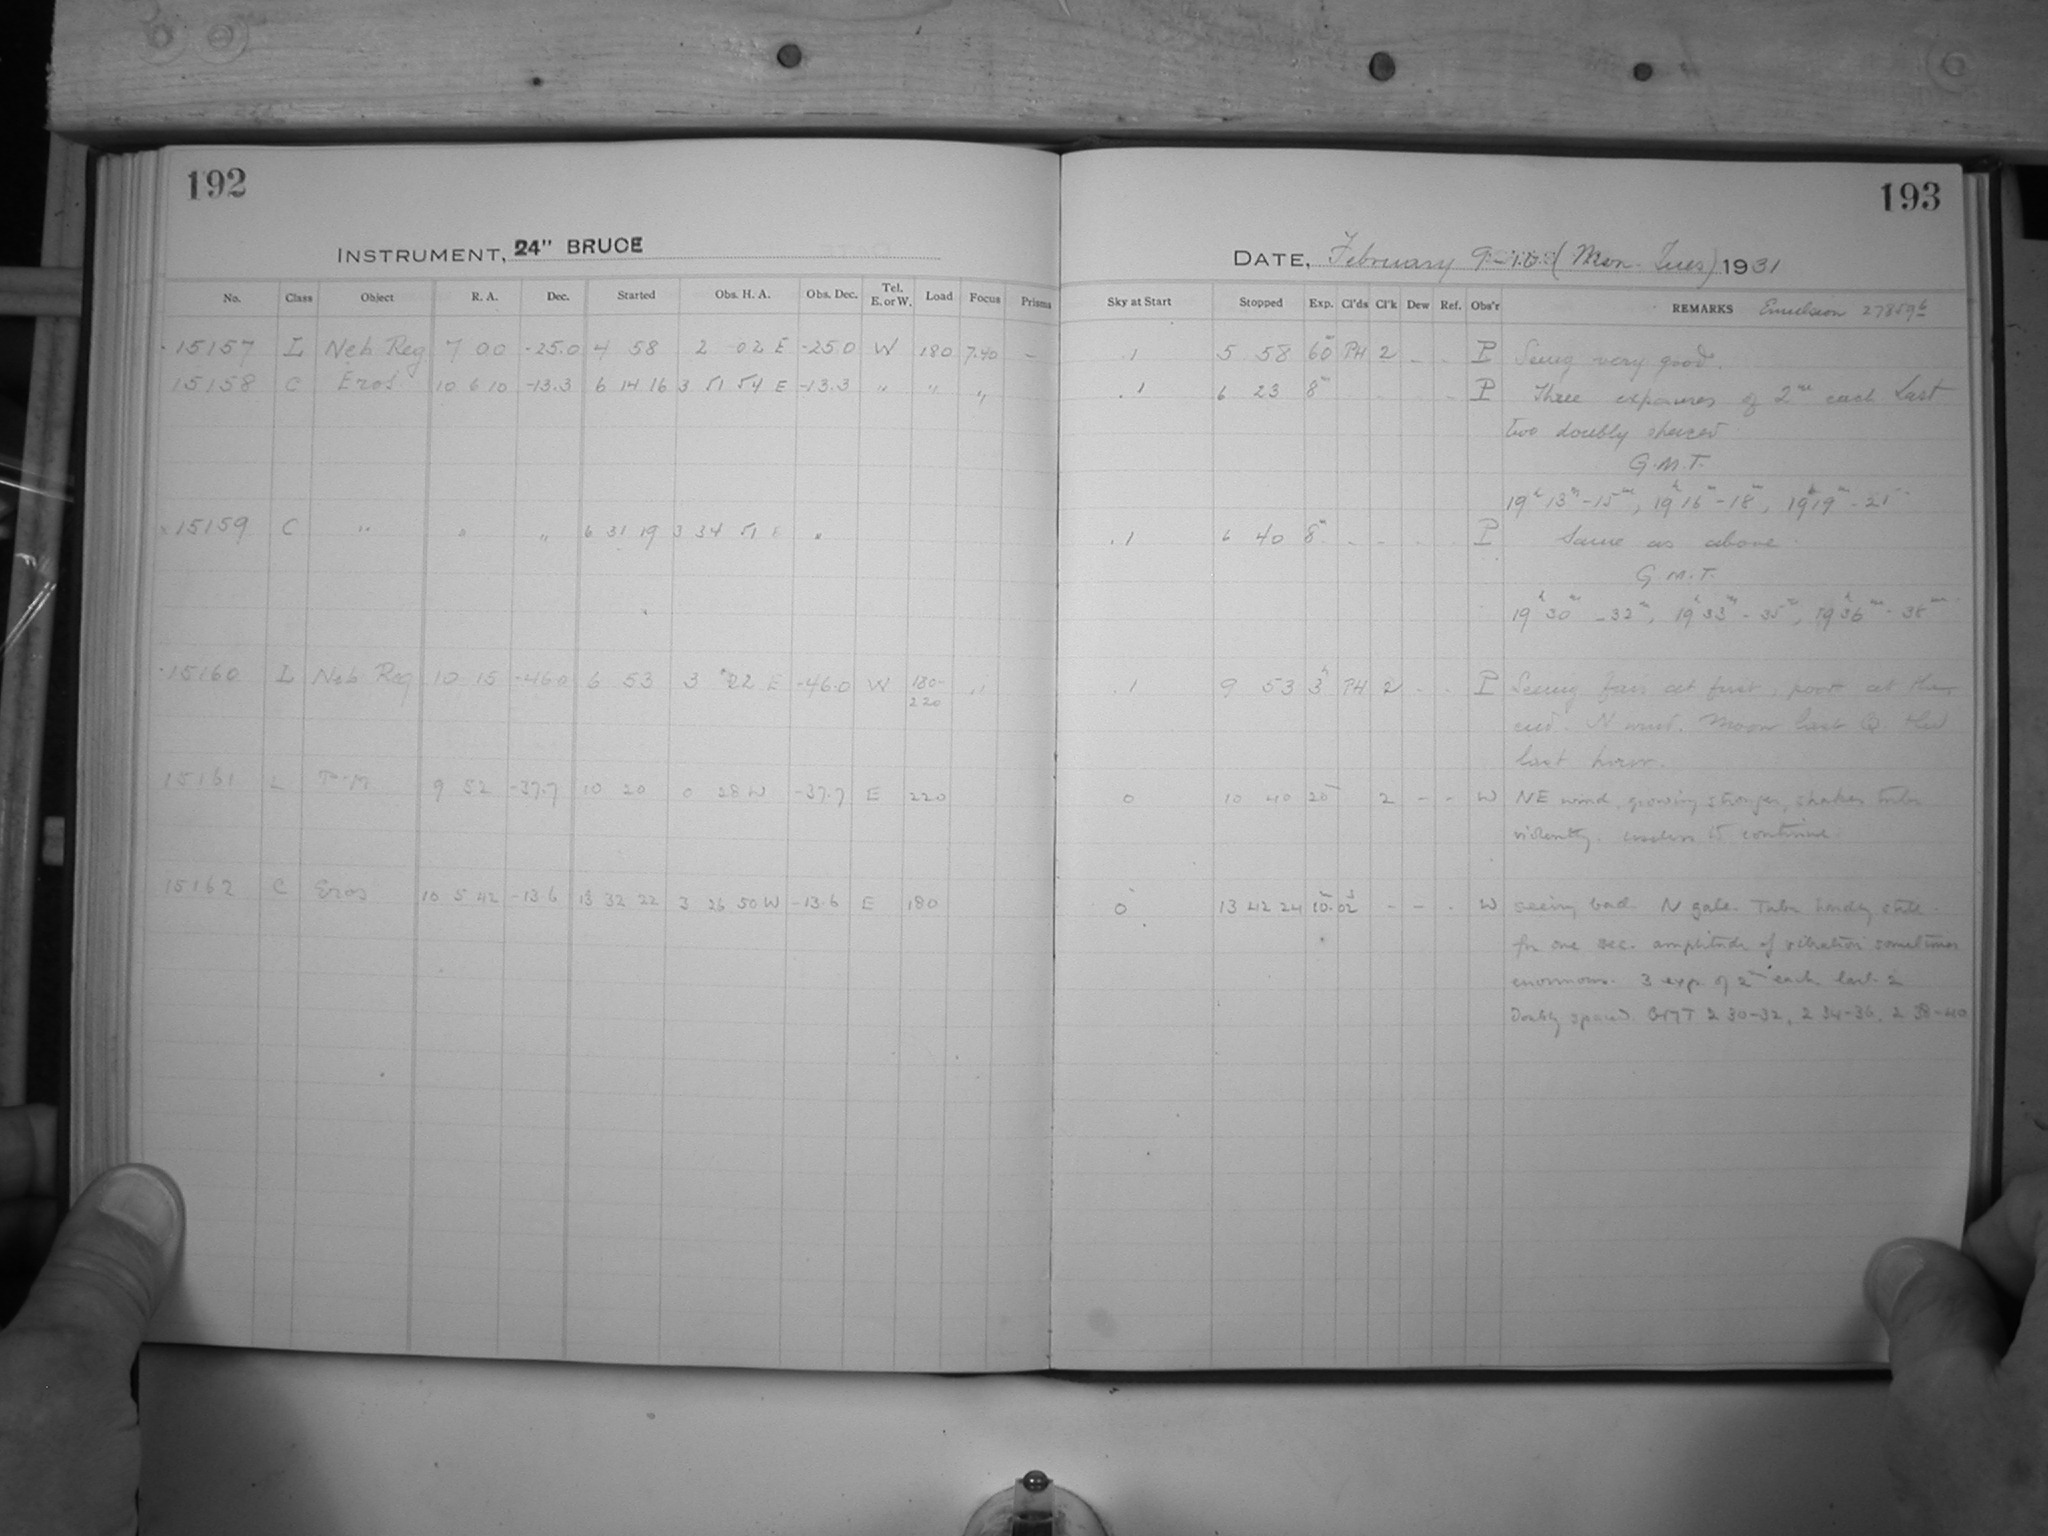 192
193
INSTRUMENT, 24" BRUCE
DATE, February 9-10 (Mon-Tues) 1931
No. Class Object R. A. Dec. Started Obs. H. A. Obs. Dec. Tel. E. or W. Load Focus Prisms Sky at Start Stopped Exp. Cl'ds Cl'k Dew Ref. Obs'r REMARKS Emulsion
15157 L Neb Reg 7 00 -25.0 4 58 2 02 E -25.0 W 180 7.40 - .1 5 58 60m PH 2 - - P Seeing very good.
15158 C Eros 10 6 10 -13.3 6 14 16 3 51 54 E -13.3 " " " .1 6 23 8m P Three exposures of 2m each Last
two doubly spaced
G.M.T.
19h 13m-15m, 19h 16m-18m, 19h 19m-21
15159 C " " " 6 31 19 3 34 51 E " .1 6 40 8m - - P Same as above
G.M.T.
19h 30m-32m, 19h 33m-35m, 19h 36m-38m
15160 L Neb Reg 10 15 -46.0 6 53 3 22 E -46.0 W 180- " .1 9 53 3h PH 2 - - P Seeing fair at first, poor at the
220
end. N wind. Moon last Q. the
last hour.
15161 L 9 52 -37.7 10 20 0 28 W -37.7 E 220 0 10 40 20 2 - - W NE wind, growing stronger, shakes tube
violently. useless to continue
15162 C Eros 10 5 42 -13.6 13 32 22 3 26 50 W -13.6 E 180 0 13 42 24 10m 02s - - - W seeing bad N gale. Tube hardly still
for one sec. amplitude of vibration sometimes
enormous. 3 exp. of 2m each last 2
Doubly spaced GMT 2 30-32, 2 34-36, 2 38-40